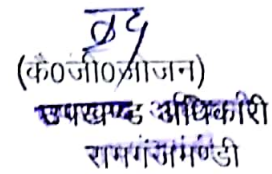 (के०जी०जोजन)
उपखण्ड अधिकारी
रामगंजमण्डी